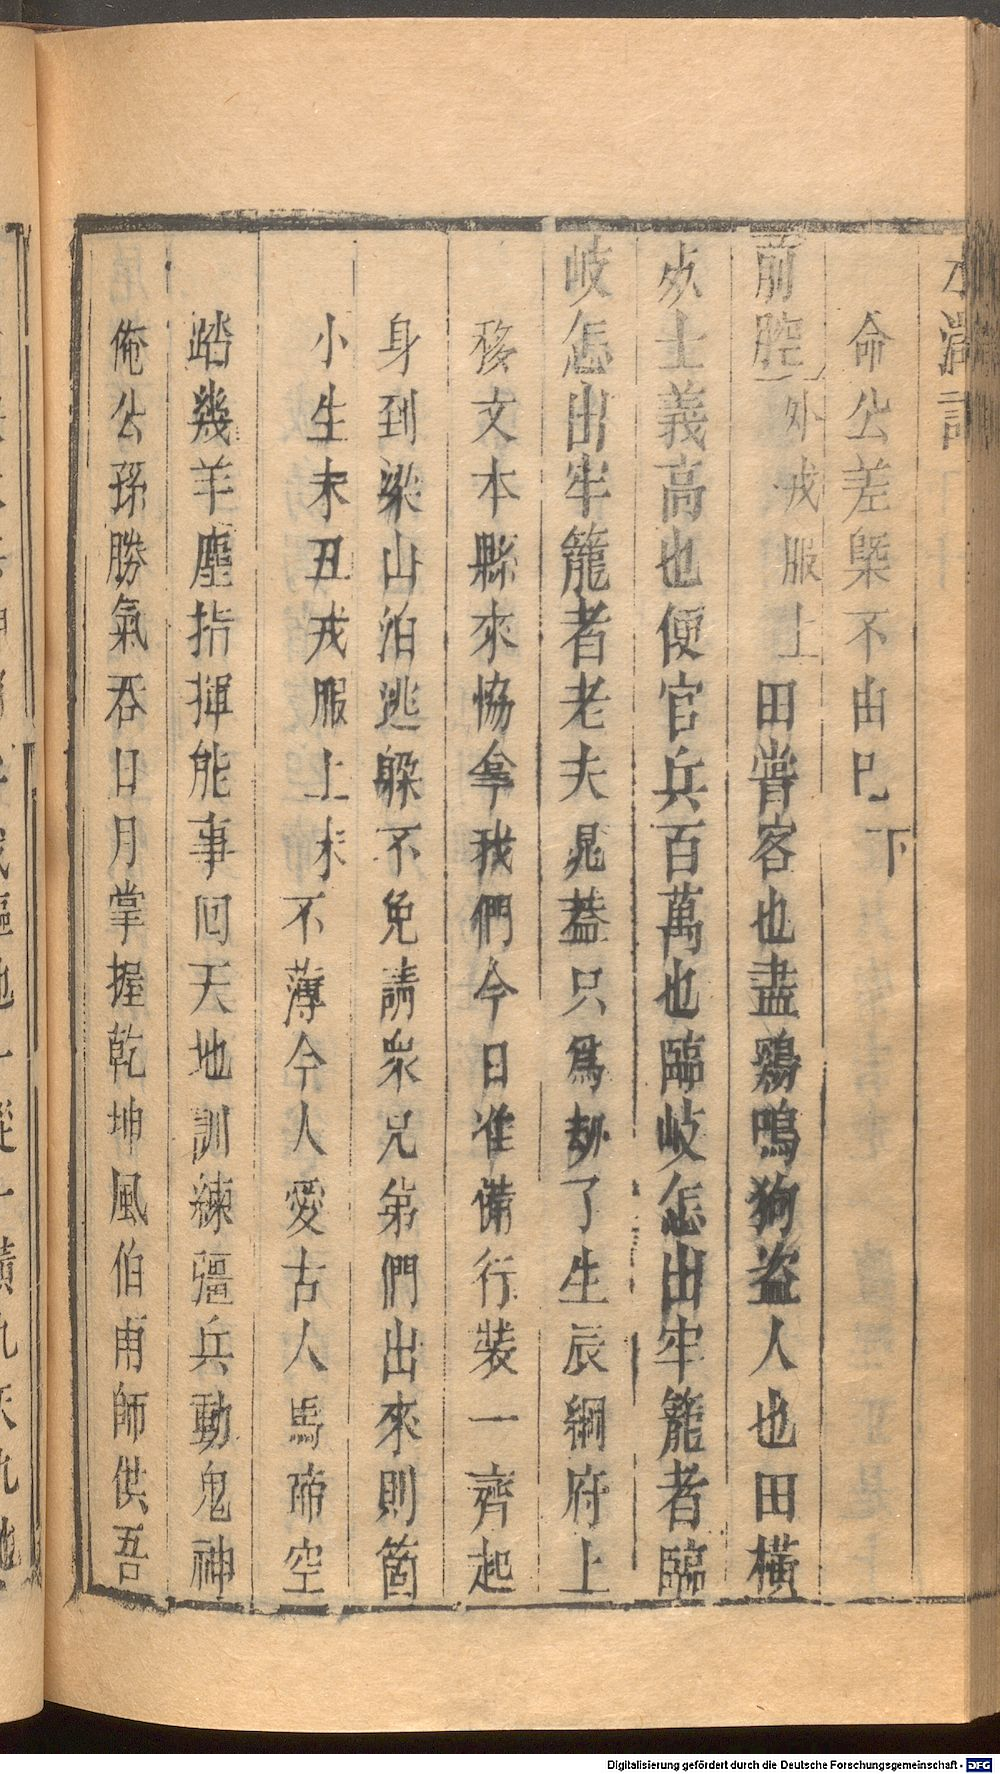 水滸記
命公差槩不由已下
前腔外戎服上田嘗客也盡鷄鳴狗盗人也田橫
処士義高也便官兵百萬也臨岐怎出牢籠者臨
岐怎出牢籠者老夫晁蓋只爲劫了生辰綱府上
移文本縣來恊拿我們今日准備行裝一齊起
身到梁山泊逃躱不免請衆兄弟們出來則箇
小生末丑戎服上末不薄今人愛古人馬啼空
踏幾羊塵指揮能事回天地訓練彊兵動鬼神
俺公孫勝氣吞日月掌握乾坤風伯雨師供吾
Digitalisierung gefördert durch die Deutsche Forschungsgemeinschaft - DFG